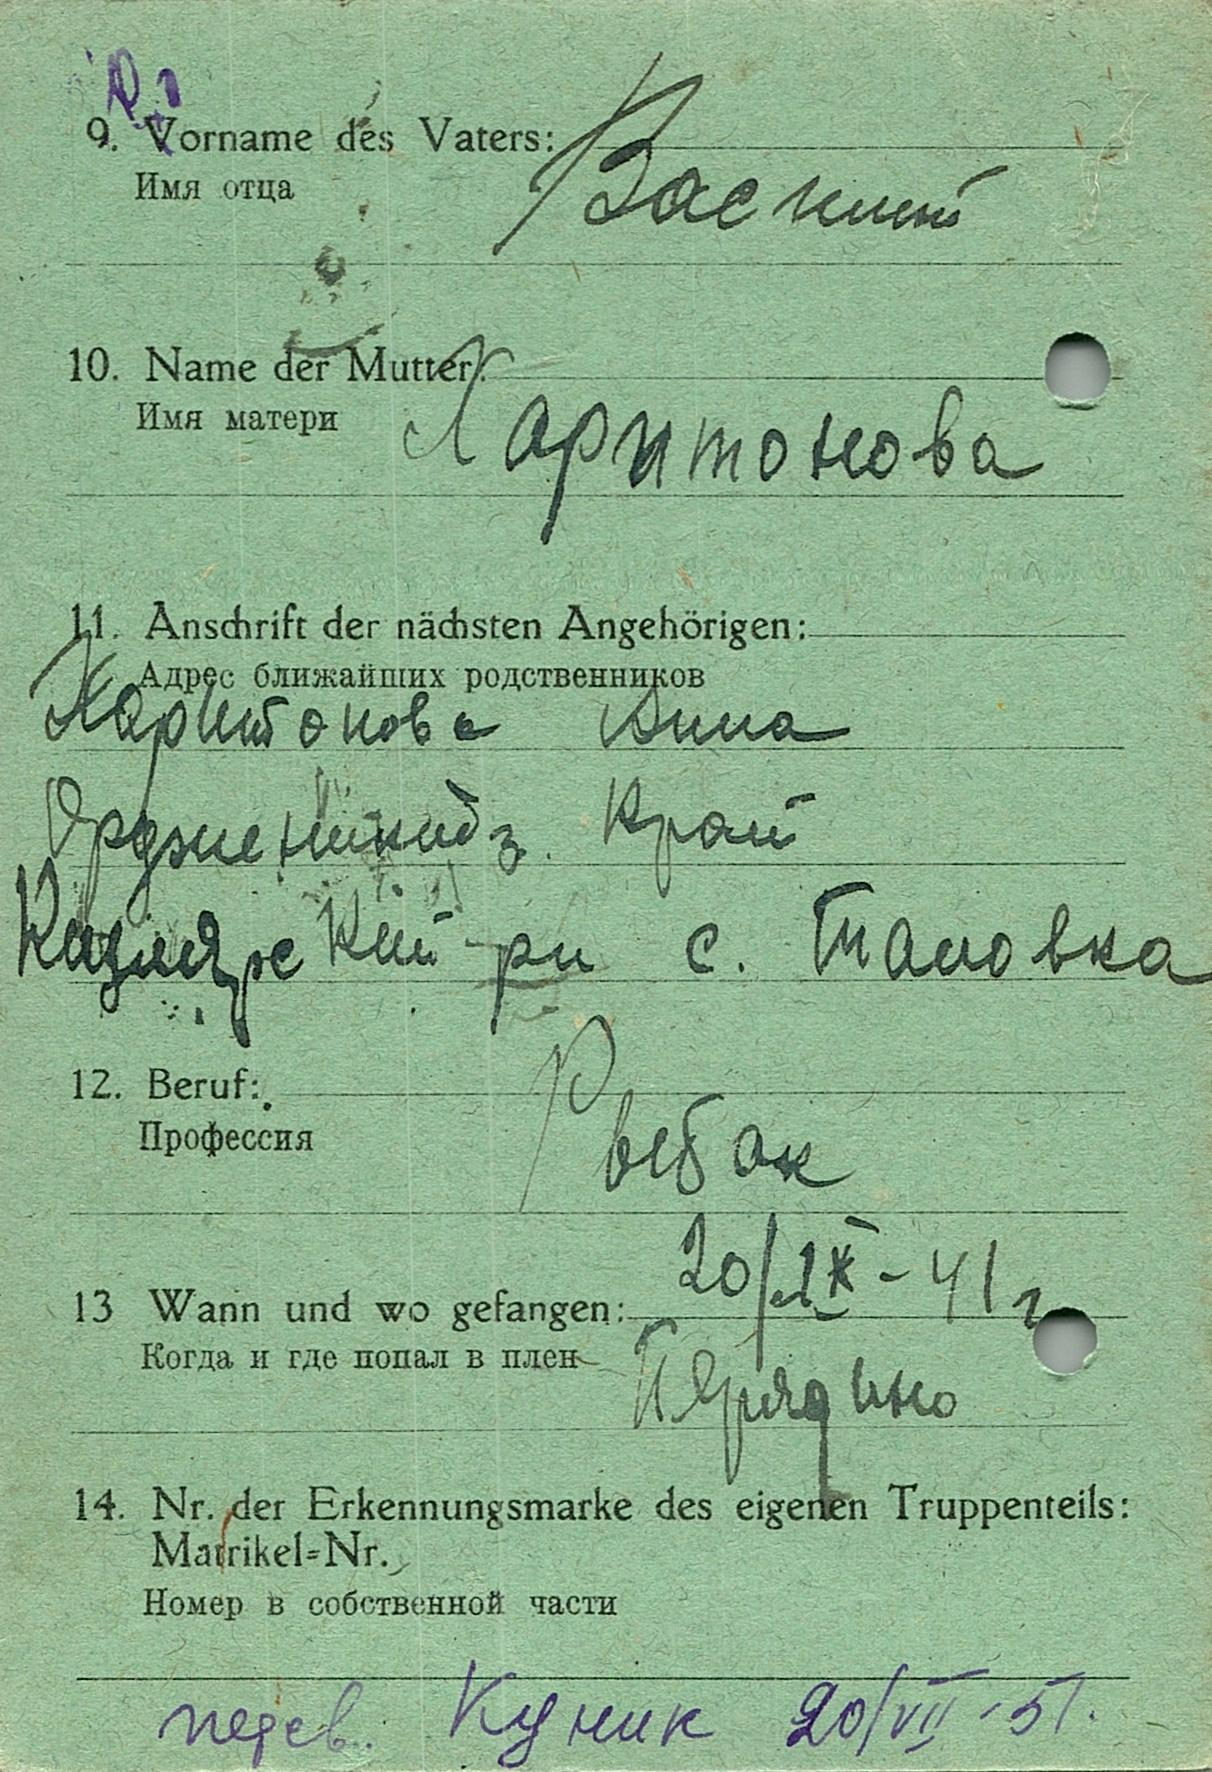 9. Vorname des Vaters:
Имя отца
Василий
10. Name der Mutter:
Имя матери
Харитонова
11. Anschrift der nächsten Angehörigen:
Адрес ближайших родственников
Харитонова Анна
Орджоникидз. край
Кизлярский р-н с. Таловка
12. Beruf:
Профессия
Рыбак
20/IX-41г
13 Wann und wo gefangen:
Когда и где попал в плен
14. Nr. der Erkennungsmarke des eigenen Truppenteils:
Matrikel=Nr.
Номер в собственной части
перев. Куник 20/VII-51.